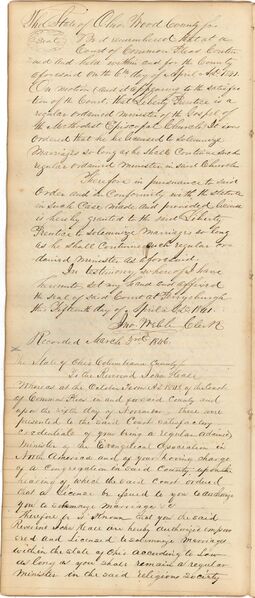 The State of Ohio Wood County ss
Seal
Be it remembered that at a
Court of Common Pleas
and held within and for the County
aforesaid on the 6th day of April AD 1841
On motion and it appearing to the satisfac
tion of the Court, that Liberty Prentice is a
regular ordained Minister of the Gospel of
the Methodist Episcopal Church, It is
ordered that he be licensed to Solemnize
Marriages so long as he shall Continue such
regular ordained Minister in said Church
Therefore in pursuance to said
Order and in Conformity with the Statute
in such Case Made and provided License
is hereby granted to the said Liberty
Prentice to Solemnize Marriages so long
as he shall Continue such regular or
dained Minister as aforesaid
In testimony whereof I have
hereunto set my hand and affixed
the Seal of said Court at Perrysburgh
the fifteenth day of April AD 1841
Jno Webb Clerk
Recorded March 3rd 1846
The State of Ohio Columbiana County
To the Reverend John
Whereas at the October Term AD of the Court
of Common Pleas in and for said County and
upon the day of November, there was
presented to the said Court satisfactory
credentials of you being a regular ordained
Minister of the Evangelical Association in
North America and of your having charge
of a Congregation in said County upon the
hearing of which the said Court ordered
that a License be issued to you to authorize
you to solemnize Marriages
Therefore Know that you the said
Reverend John are hereby Authorized empow
ered and Licensed to solemnize Marriages
within the State of Ohio According to Law
so long as you shall remain a regular
Minister in the said religious Society